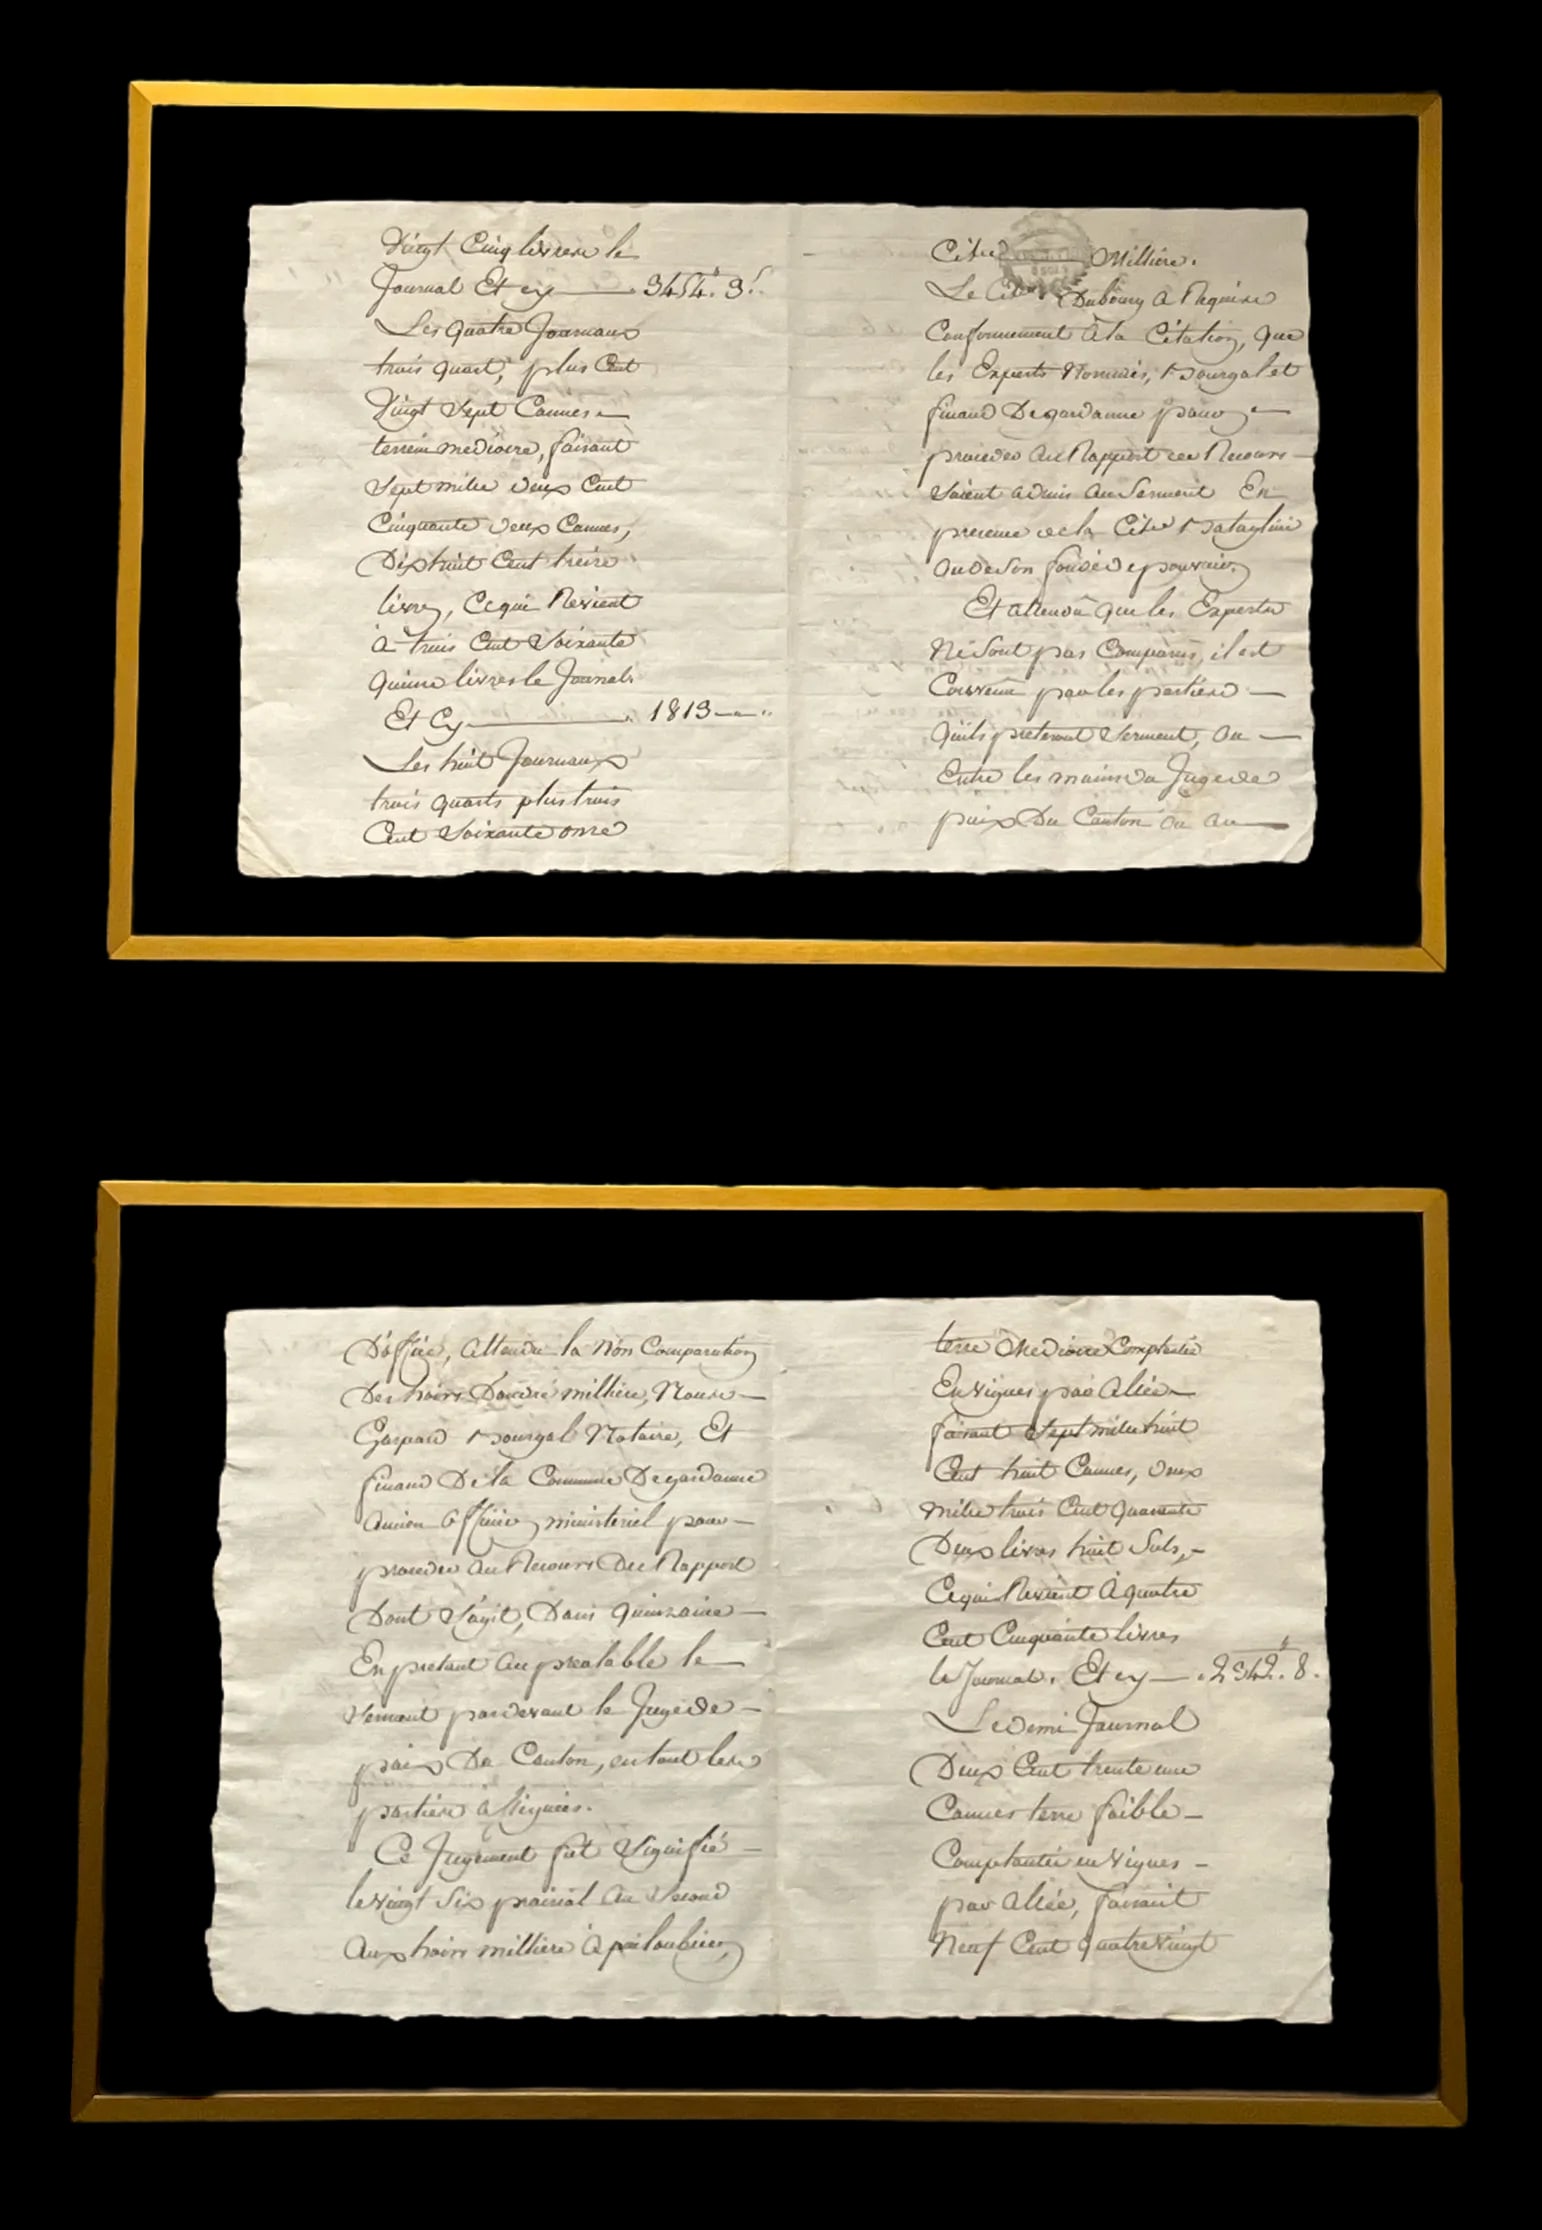 Vingt Cinq livres le
Journal Et cy 3454.# 3.s
Les quatre Journaux
trois quart, plus Cent
Vingt Sept Cannes
terrein mediocre, faisant
Sept mille deux Cent
Cinquante deux Cannes,
Dixhuit Cent treize
livres, Ce qui Revient
à trois Cent Soixante
quinze livres le Journal.
Et Cy 1813
Les huit Journaux
trois quarts plus trois
Cent Soixante onze
Citne Millière.
Le Citen Dubourg a Requise
Conformement à la Citation, que
les Experts Nommés, et
finaud De gardanne pour
proceder au Rapport de Recours
Soient admis au Serment En
presence de la Citne
ou de Son fondé de pouvoir,
Et attendû que les Experts
Ne Sont pas Comparus, il est
Convenu par les parties
qu'ils preteront Serment, ou
Entre les mains du Juge de
paix Du Canton ou au
D'office, attendu la Non Comparution
Des hoirs D'andré millière, Nous
Gaspard Notaire, Et
finaud De la Commune De gardanne
ancien officier ministeriel pour
proceder au Recours Du Rapport
Dont S'agit, Dans quinzaine
En pretant au prealable le
Serment pardevant le Juge de
paix Du Canton, les
parties assignées.
Ce Jugement fut Signifié
le vingt Six prairial an Second
aux hoirs millière à
terre Mediocre Complantée
En vignes par allée
faisant Sept mille huit
Cent huit Cannes, deux
mille trois Cent quarante
Deux livres huit Sols,
Ce qui Revient à quatre
Cent Cinquante livres
le Journal. Et cy 2342.# 8.
Le demi Journal
Deux Cent trente une
Cannes terre faible
Complantée en vignes
par allée, faisant
Neuf Cent quatre vingt